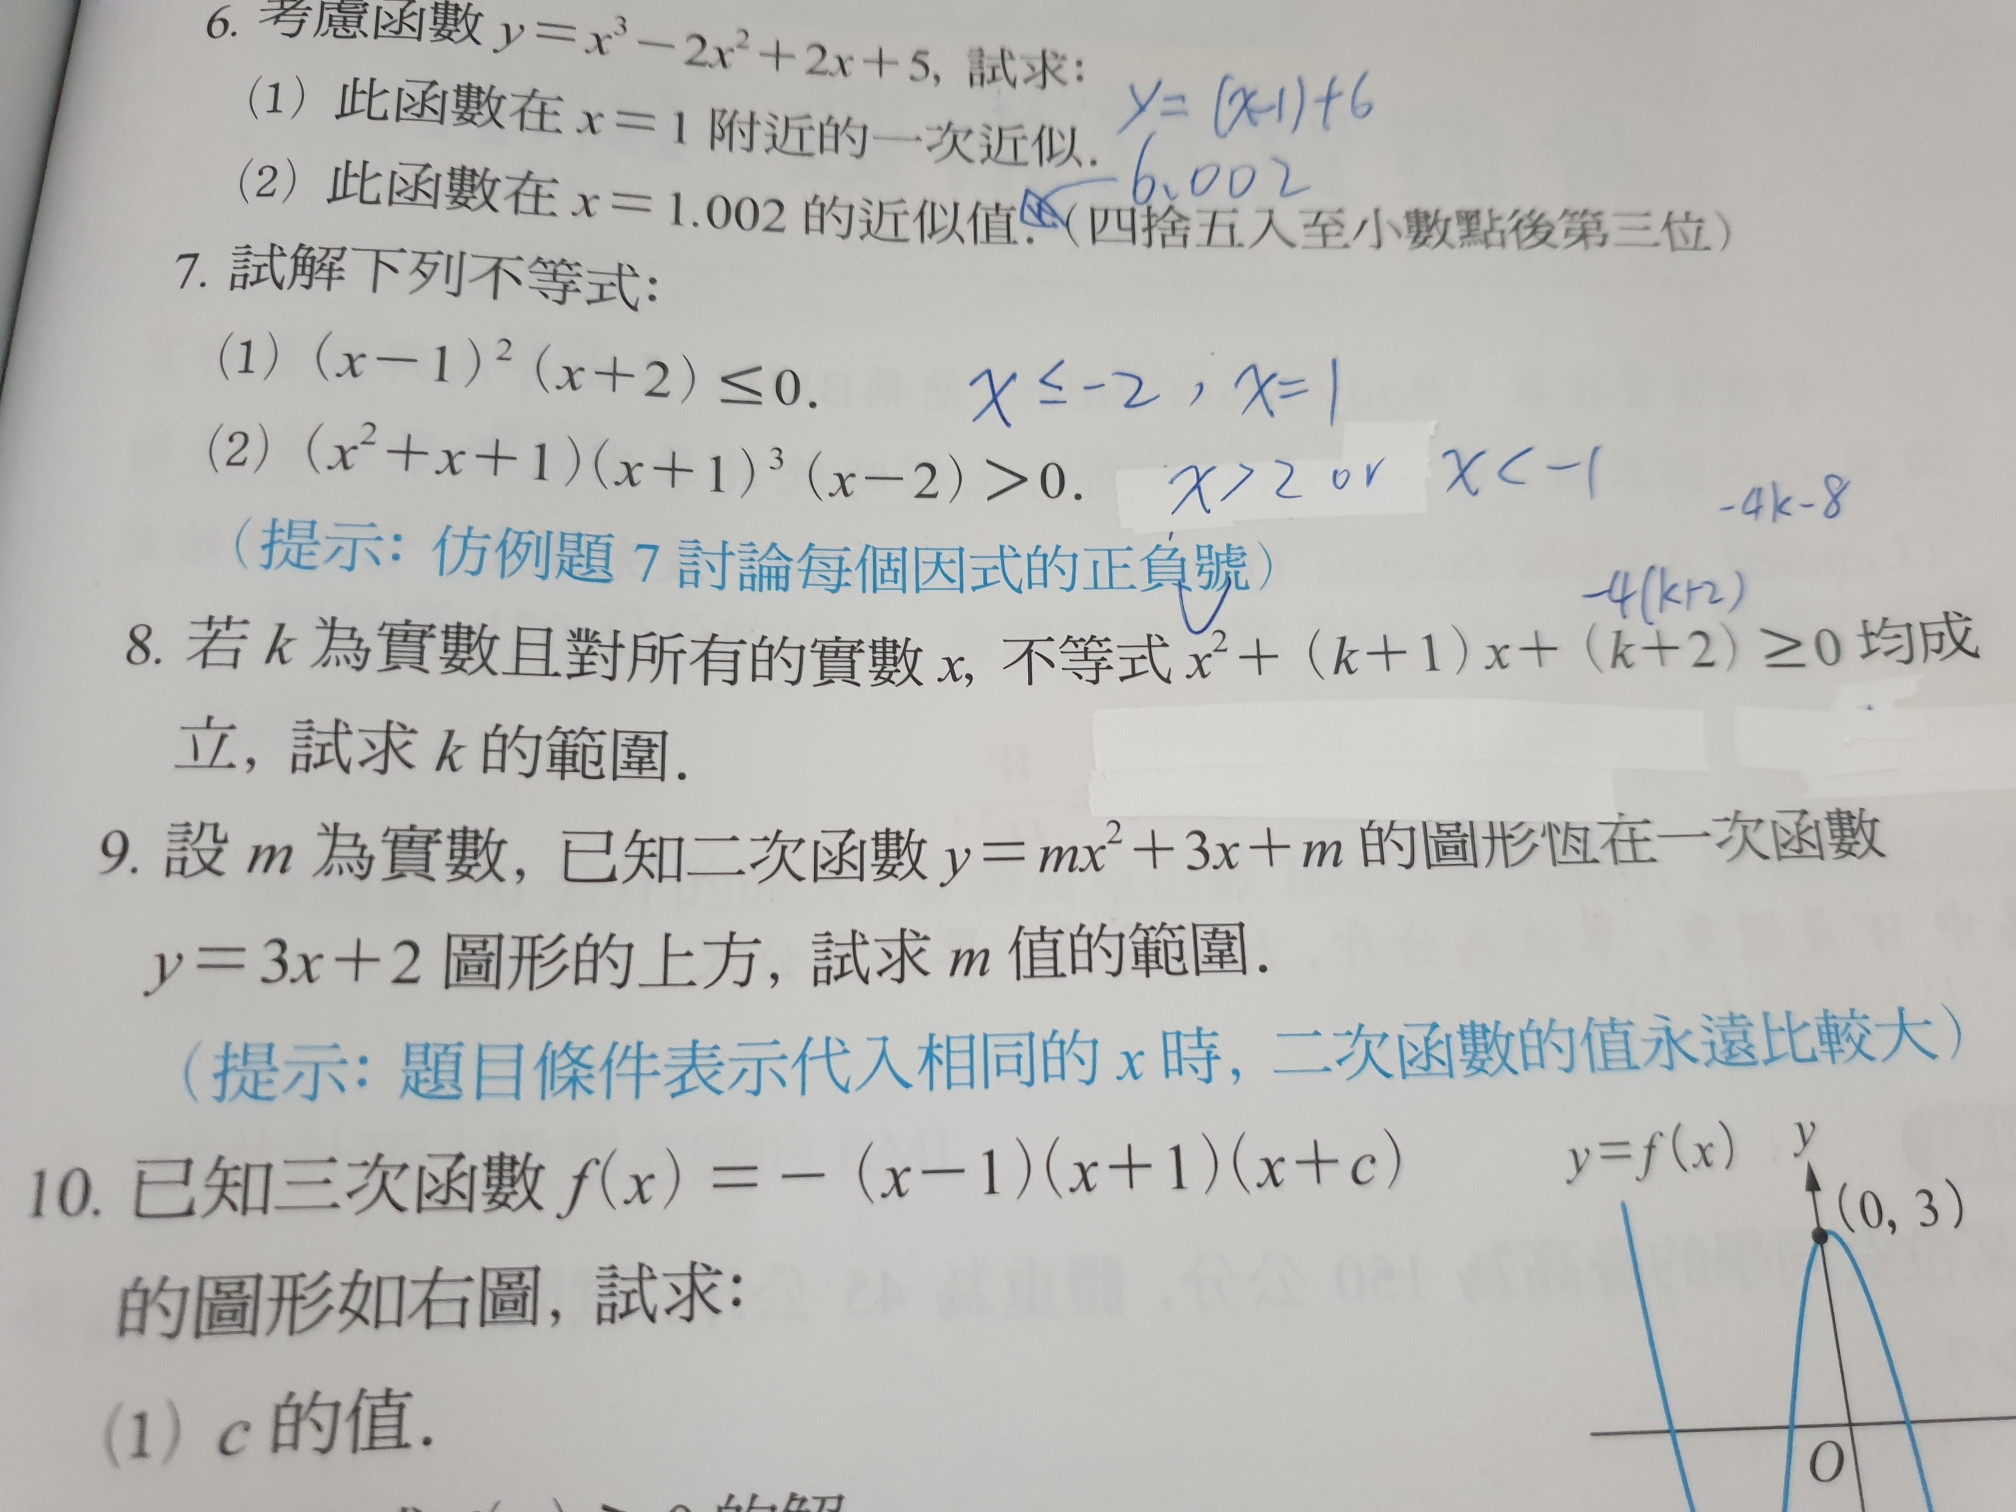 6. 考慮函數 y=x³-2x²+2x+5, 試求:
(1) 此函數在 x=1 附近的一次近似. y=(x-1)+6
(2) 此函數在 x=1.002 的近似值.(四捨五入至小數點後第三位) 6.002
7. 試解下列不等式:
(1) (x-1)²(x+2)≤0. x≤-2, x=1
(2) (x²+x+1)(x+1)³(x-2)>0. x>2 or x<-1
-4k-8
(提示: 仿例題 7 討論每個因式的正負號)
-4(k+2)
8. 若 k 為實數且對所有的實數 x, 不等式 x²+(k+1)x+(k+2)≥0 均成
立, 試求 k 的範圍.
9. 設 m 為實數, 已知二次函數 y=mx²+3x+m 的圖形恆在一次函數
y=3x+2 圖形的上方, 試求 m 值的範圍.
(提示: 題目條件表示代入相同的 x 時, 二次函數的值永遠比較大)
10. 已知三次函數 f(x)=-(x-1)(x+1)(x+c)
的圖形如右圖, 試求:
(1) c 的值.
y=f(x) y
(0, 3)
O